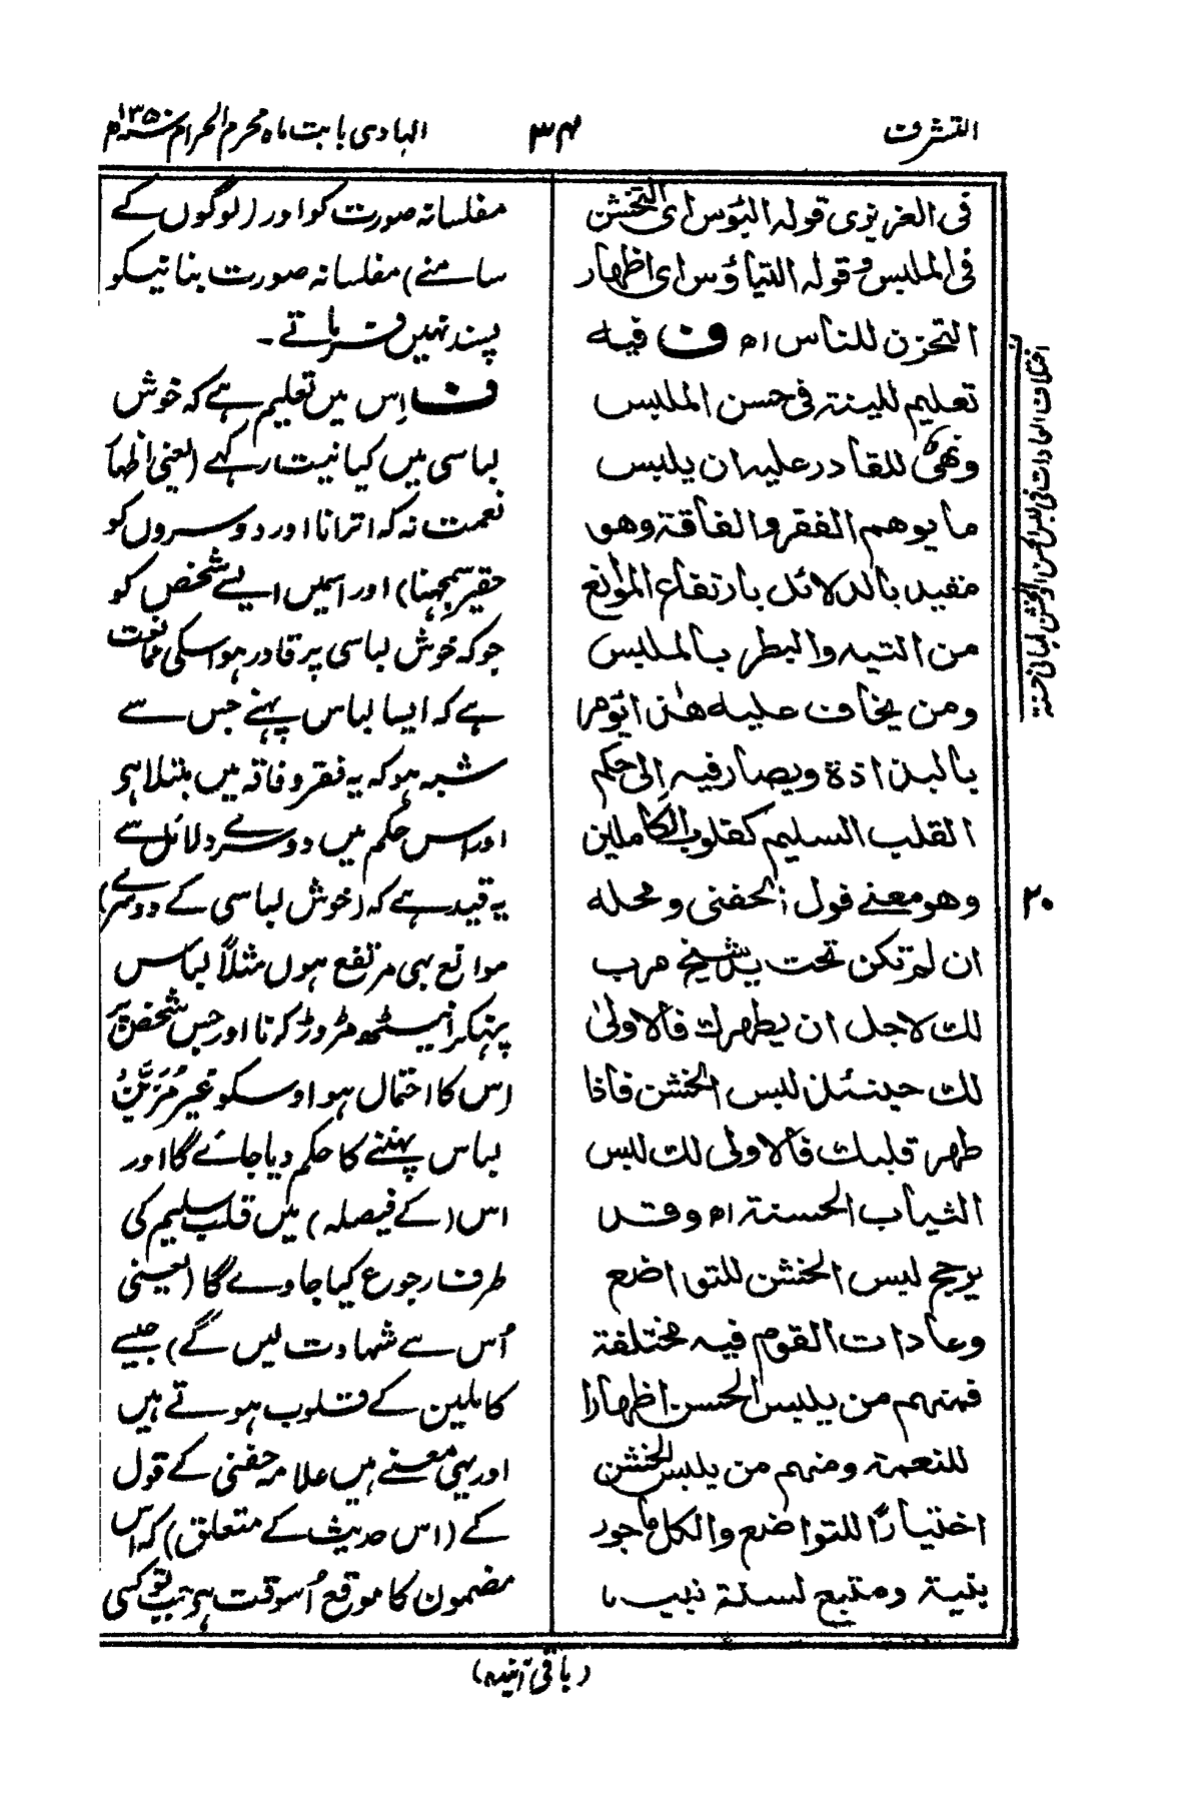 التشرف
۳۴
الہادی بابت ماہ محرم الحرام ۱۳۵۰ھ
فی العزیزی قولہ البؤس ای التخشن
فی الملبس وقولہ التباؤس ای اظہار
التحزن للناس اھ ف فیہ
تعلیم للینۃ فی حسن الملبس
ونھی للقادر علیہ ان یلبس
ما یوھم الفقر والفاقۃ وھو
مفید بالدلائل بارتفاع الموانع
من التیہ والبطر بالملبس
ومن یخاف علیہ ھذا یؤمر
بالبذاذۃ ویصار فیہ الی حکم
القلب السلیم کقلوب الکاملین
وھو معنے قول الحفنی ومحلہ
ان لم تکن تحت ید شیخ مرب
لک لاجل ان یطھرک فالاولیٰ
لک حینئذ لبس الخشن فاذا
طھر قلبک فالاولی لک لبس
الثیاب الحسنۃ اھ وقد
یرجح لبس الخشن للتواضع
وعادات القوم فیہ مختلفۃ
فمنہم من یلبس الحسن اظہارا
للنعمۃ ومنہم من یلبس الخشن
اختیارًا للتواضع والکل ماجور
بنیۃ ومتبع لسنۃ نبیہ
مفلسانہ صورت کو اور (لوگوں کے
سامنے) مفلسانہ صورت بنانیکو
پسند نہیں فرماتے۔
ف اِس میں تعلیم ہے کہ خوش
لباسی میں کیا نیت رکہے (یعنی اظہار
نعمت نہ کہ اترانا اور دوسروں کو
حقیر سمجہنا) اور اسمیں ایسے شخص کو
جو کہ خوش لباسی پر قادر ہو اسکی ممانعت
ہے کہ ایسا لباس پہنے جس سے
شبہ ہو کہ یہ فقر و فاقہ میں مبتلا ہی
اور اس حکم میں دوسرے دلائل سے
یہ قید ہے کہ (خوش لباسی کے دوسرے)
موانع بہی مرتفع ہوں مثلاً لباس
پہنکر اینٹھ مڑوڑ کرنا اور جس شخص پر
اس کا احتمال ہو اوسکو غیر مُزَیَّنُ
لباس پہننے کا حکم دیا جائے گا اور
اس (کے فیصلہ) میں قلب سلیم کی
طرف رجوع کیا جاوے گا (یعنی
اُس سے شہادت لیں گے) جیسے
کاملین کے قلوب ہوتے ہیں
اور یہی معنے ہیں علامہ حفنی کے قول
کے (اس حدیث کے متعلق) کہ اس
مضمون کا موقع اُسوقت ہو جب تو کسی
۲۰
(باقی آئندہ)